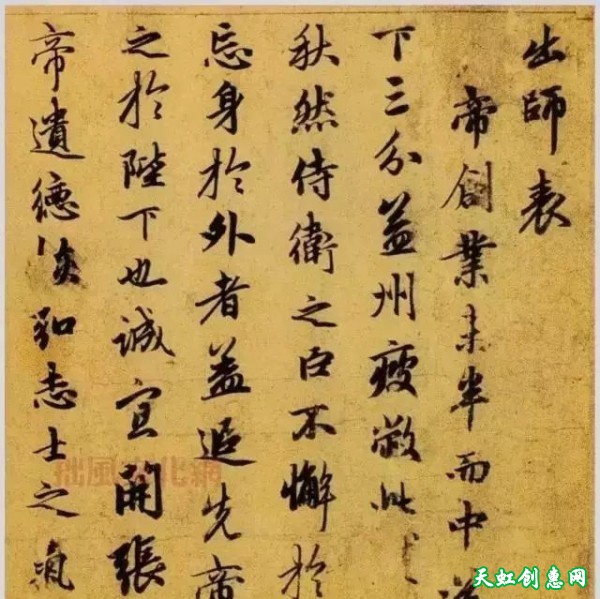 出師表
帝創業未半而中
下三分益州疲敝此
秋然侍衛之臣不懈於
忘身於外者蓋追先帝
之於陛下也誠宜開張
帝遺德恢弘志士之氣
拙風文化網
天虹创惠网